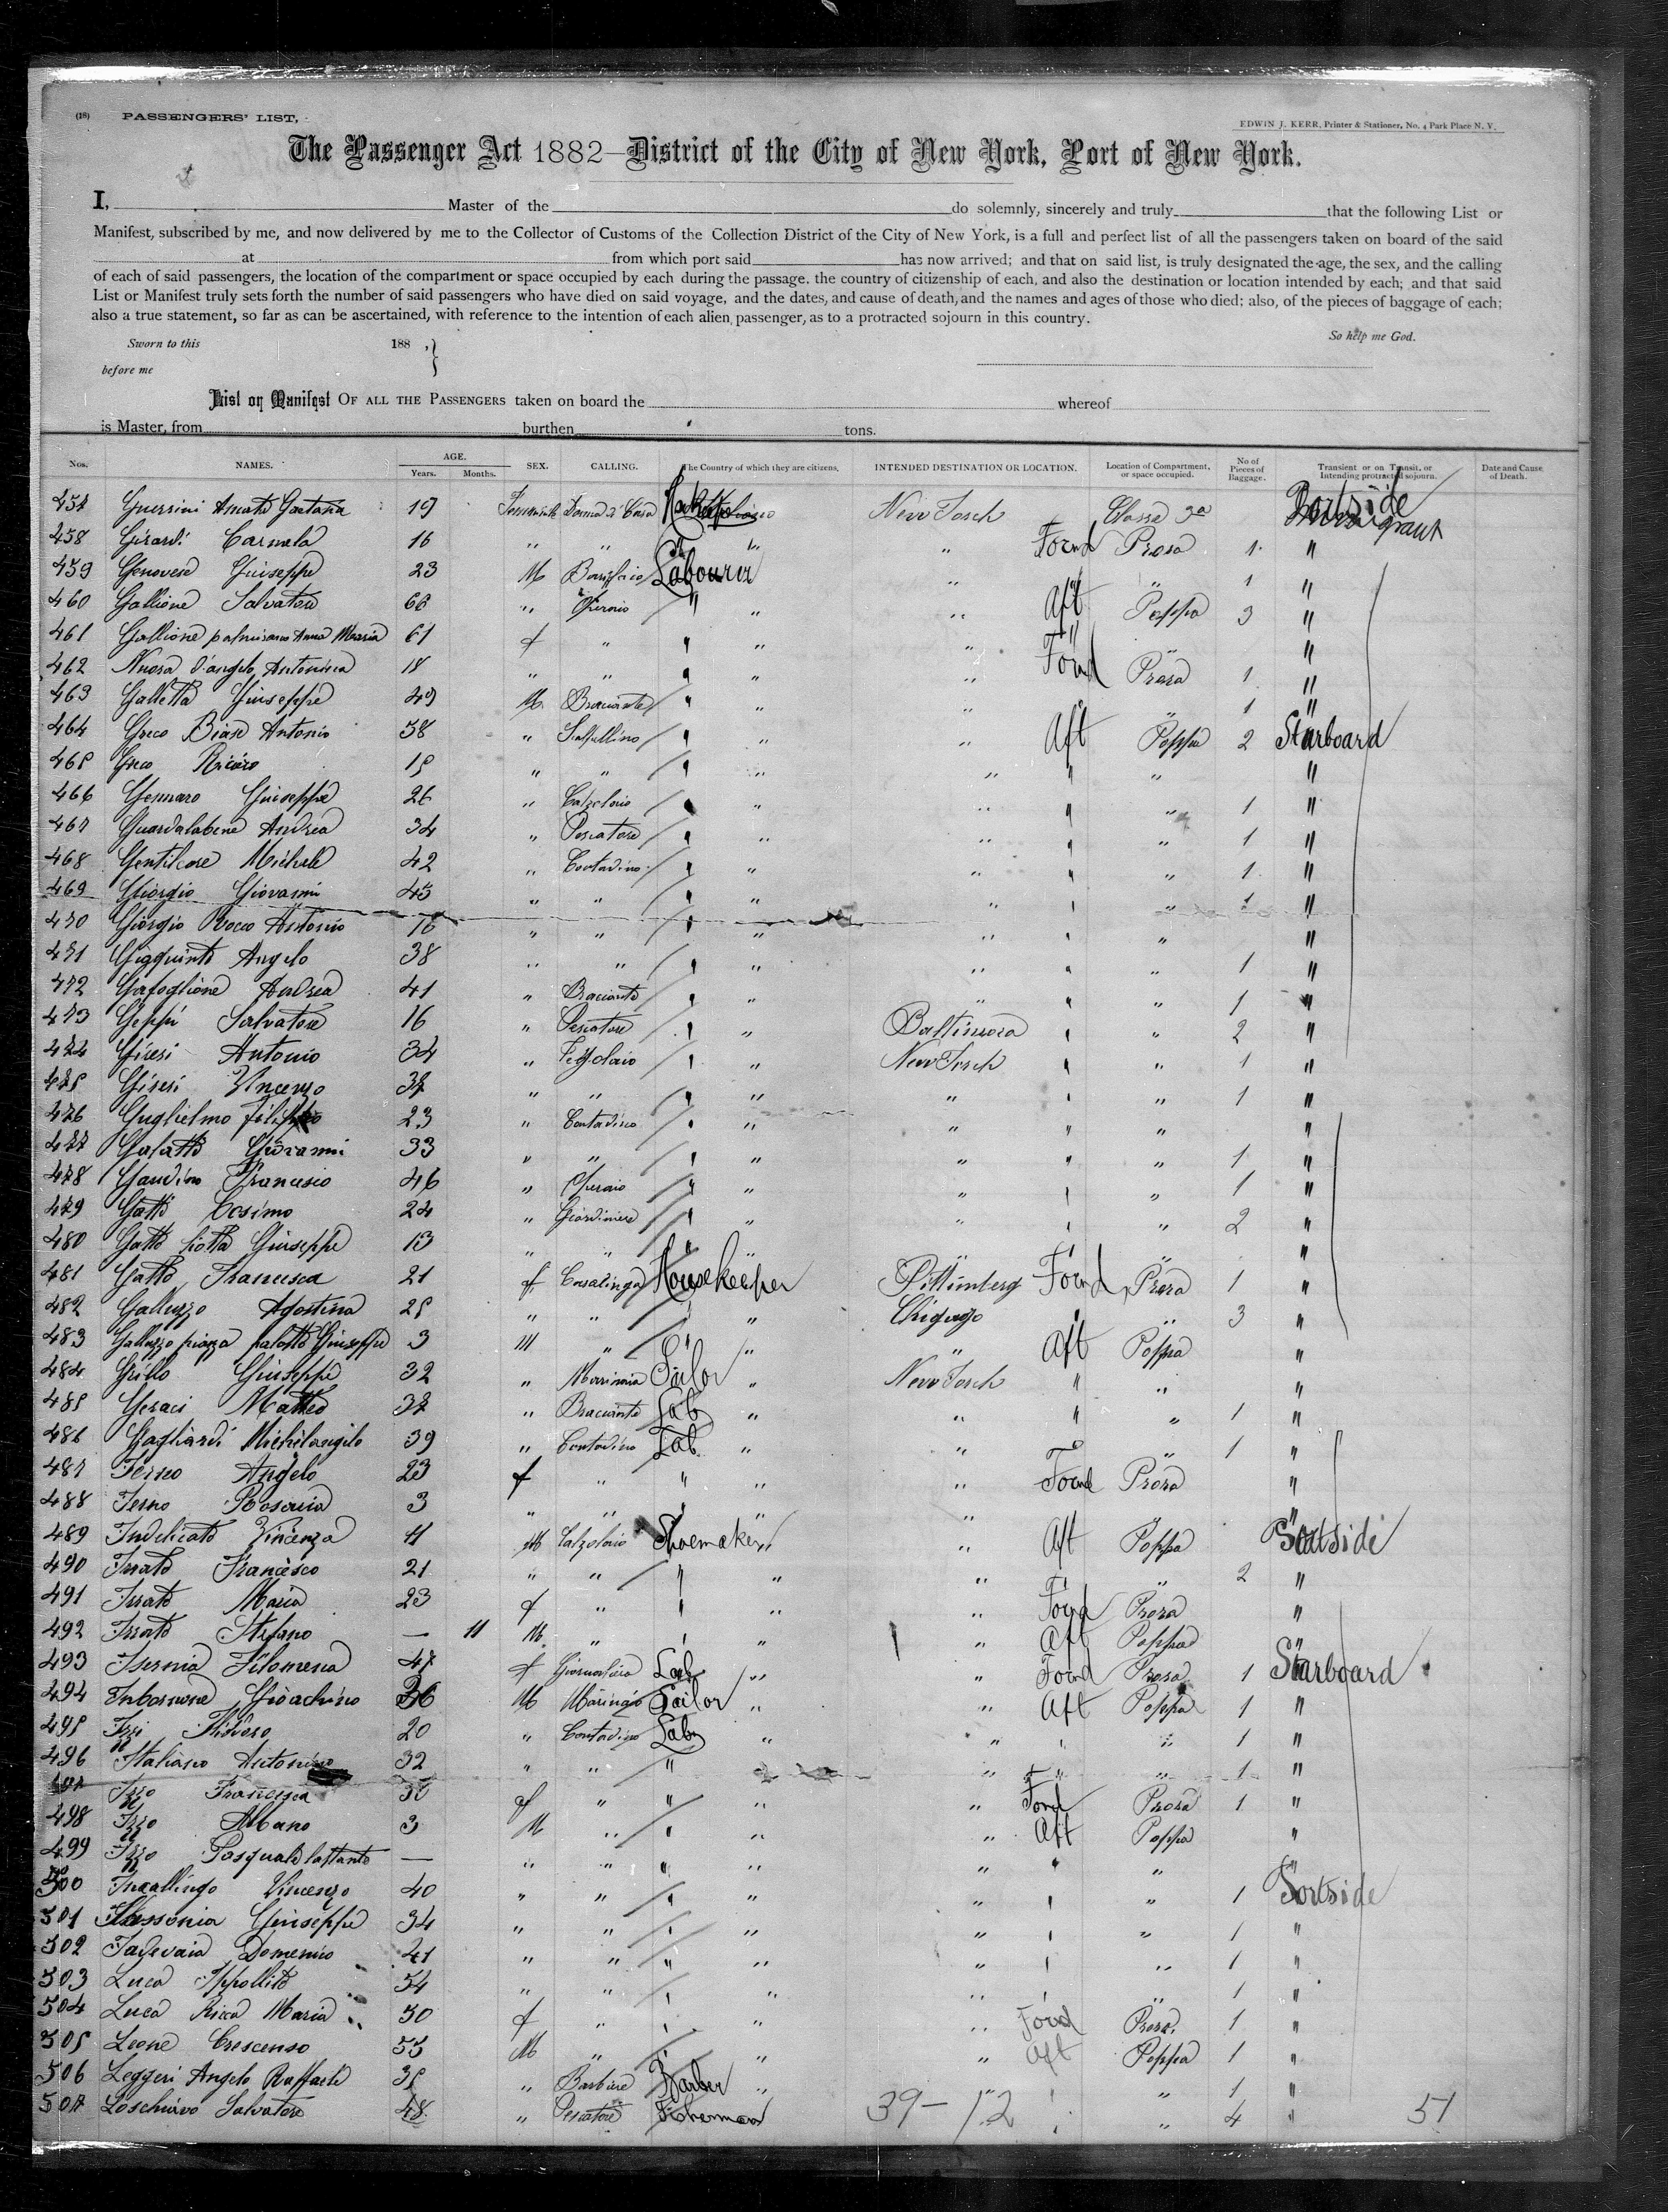 (18) PASSENGERS' LIST,
EDWIN J. KERR, Printer & Stationer, No. 4 Park Place N. Y.
The Passenger Act 1882—District of the City of New York, Port of New York.
I, Master of the do solemnly, sincerely and truly that the following List or
Manifest, subscribed by me, and now delivered by me to the Collector of Customs of the Collection District of the City of New York, is a full and perfect list of all the passengers taken on board of the said
at from which port said has now arrived; and that on said list, is truly designated the age, the sex, and the calling
of each of said passengers, the location of the compartment or space occupied by each during the passage. the country of citizenship of each, and also the destination or location intended by each; and that said
List or Manifest truly sets forth the number of said passengers who have died on said voyage, and the dates, and cause of death, and the names and ages of those who died; also, of the pieces of baggage of each;
also a true statement, so far as can be ascertained, with reference to the intention of each alien passenger, as to a protracted sojourn in this country.
So help me God.
Sworn to this 188 , }
before me
List or Manifest OF ALL THE PASSENGERS taken on board the whereof
is Master, from burthen tons.
Nos. NAMES. AGE. Years. Months. SEX. CALLING. The Country of which they are citizens. INTENDED DESTINATION OR LOCATION. Location of Compartment, or space occupied. No of Pieces of Baggage. Transient or on Transit, or Intending protracted sojourn. Date and Cause of Death.
457 Guerrini Amato Gaetana 19 Donna di Casa New Jorch Classe 3a Portside
458 Girardi Carmela 16 " " " " Forwd Prora 1 "
459 Genovese Giuseppe 23 M Labourer " " " 1 "
460 Gallione Salvatore 66 " Operaio " " " Aft Poppa 3 "
461 Gallione Anna Maria 61 f " " " " " " "
462 Nuora d'angelo Antonina 18 " " " " " Forwd Prora 1 "
463 Galletta Giuseppe 49 M Bracciante " " " " " 1 "
464 Greco Biase Antonio 38 " Scalpellino " " " Aft Poppa 2 Starboard
465 Greco 15 " " " " " " " "
466 Gennaro Giuseppe 26 " Calzolaio " " " " " 1 "
467 Guardalabene Andrea 34 " Pescatore " " " " " 1 "
468 Gentilcore Michele 42 " Contadino " " " " " 1 "
469 Giorgio Giovanni 45 " " " " " " " 1 "
470 Giorgio Rocco Antonio 16 " " " " " " " "
471 Gigquinto Angelo 38 " " " " " " " 1 "
472 Gafoglione Andrea 41 " Bracciante " " " " " 1 "
473 Geppi Salvatore 16 " Pescatore " " Baltimora " " 2 "
474 Giresi Antonio 34 " " " New Jorch " " 1 "
475 Giresi Vincenzo 37 " " " " " " " 1 "
476 Guglielmo Filippo 23 " Contadino " " " " " "
477 Galatto Giovanni 33 " " " " " " " 1 "
478 Gaudino Francesco 46 " Operaio " " " " " 1 "
479 Gatto Cosimo 24 " Giardiniere " " " " " 2 "
480 Gatto Giuseppe 13 " " " " " " " "
481 Gatto Francesca 21 f Casalinga Housekeeper Pittimberg Forwd Prora 1 "
482 Galluzzo Agostina 25 " " " " Chigago " " 3 "
483 Galluzzo Giuseppe 3 M " " " " Aft Poppa "
484 Grillo Giuseppe 32 " Marinaio Sailor " New Jorch " " "
485 Geraci Matteo 37 " Bracciante Lab " " " " 1 "
486 Gagliardi Michelangelo 39 " Contadino Lab. " " " " 1 "
487 Ierno Angelo 23 f " " " " Forwd Prora "
488 Ierno Rosaria 3 " " " " " " " "
489 Indelicato Vincenza 11 M Calzolaio Shoemaker " " Aft Poppa Portside
490 Inrato Francesco 21 " " " " " " " 2 "
491 Inrato Maria 23 f " " " " Forwd Prora "
492 Inrato Stefano — 11 M " " " " Aft Poppa "
493 Isernia Filomena 47 f Giornaliera Lab " " Forwd Prora 1 Starboard
494 Gioachino 36 M Marinaio Sailor " " Aft Poppa 1 "
495 Izzi 20 " Contadino Lab " " " " 1 "
496 Italiano Antonino 32 " " " " " " " 1 "
497 Izzo Francesca 30 f " " " " Forwd Prora 1 "
498 Izzo Albano 3 M " " " " Aft Poppa "
499 Izzo Pasquale lattante — " " " " " " " "
500 Incallingo Vincenzo 40 " " " " " " " 1 Portside
501 Giuseppe 34 " " " " " " " 1 "
502 Iadevaia Domenico 41 " " " " " " " 1 "
503 Luca Ippollito 54 " " " " " " " 1 "
504 Luca Ricca Maria 50 f " " " " Forwd Prora 1 "
505 Leone Crescenso 55 M " " " " Aft Poppa 1 "
506 Leggeri Angelo Raffaele 35 " Barbiere Barber " " " " 1 "
507 Loschiavo Salvatore 48 " Pescatore Fisherman 39 – 12 " " 4 " 51